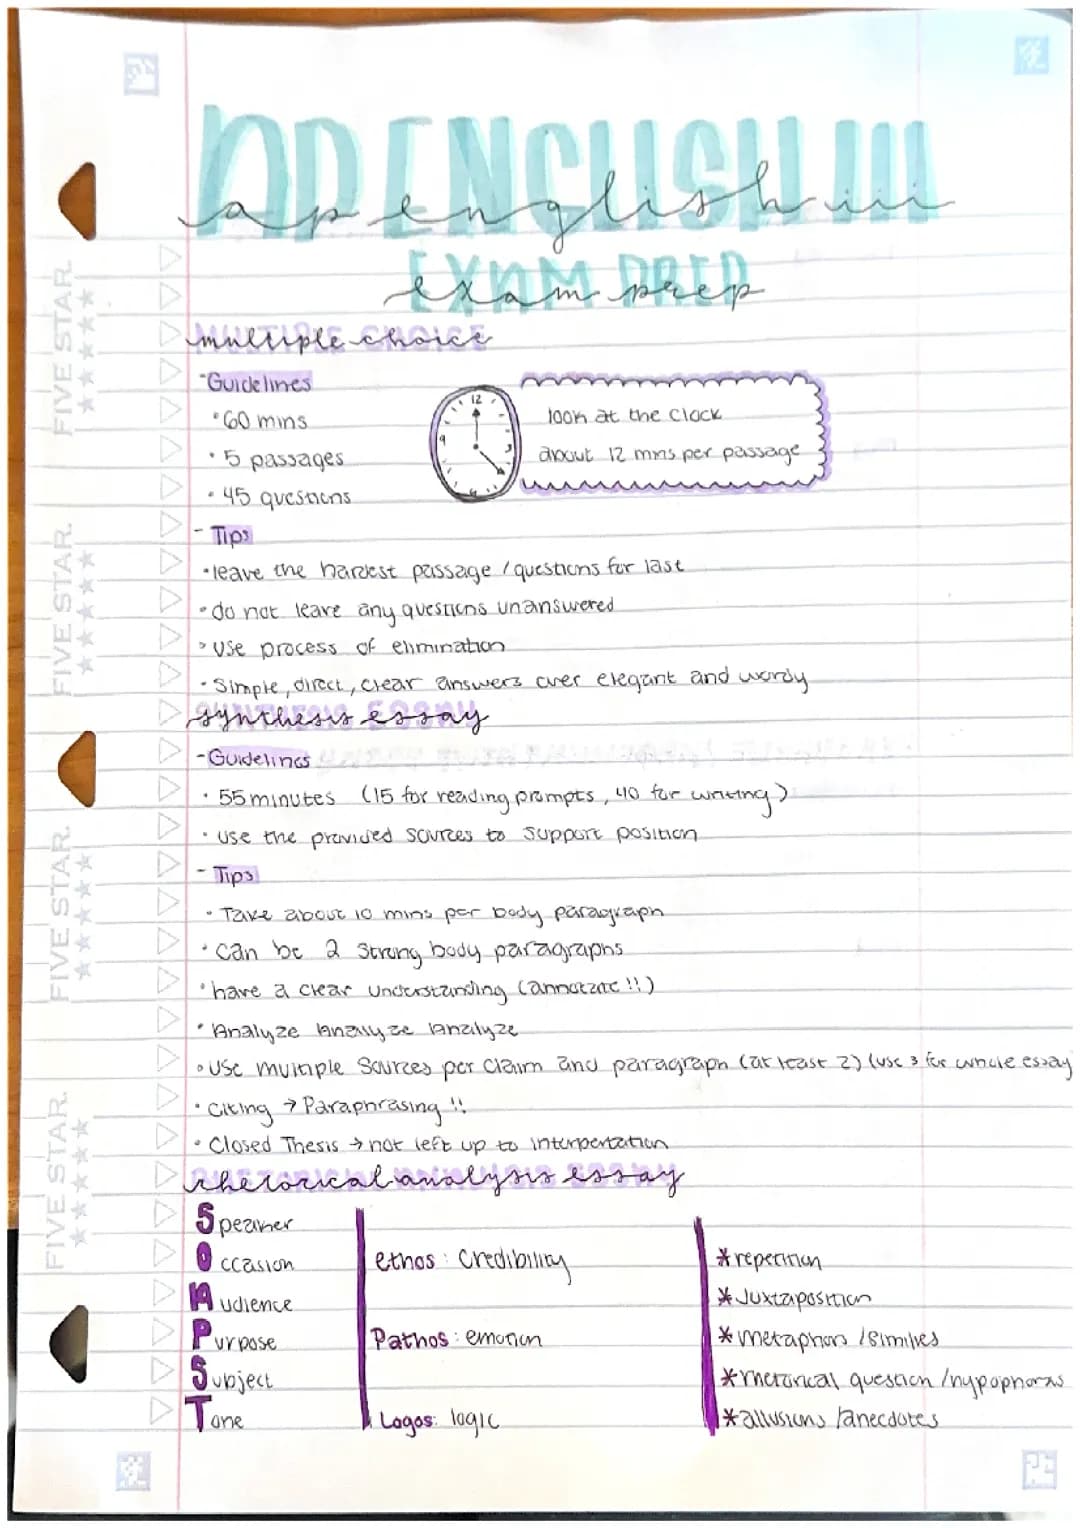 AP ENGLISH III
ap english iii
EXAM PREP
exam prep
MULTIPLE CHOICE
multiple choice
- Guidelines
• 60 mins
• 5 passages
• 45 questions
12
9
3
6
look at the clock
about 12 mins per passage
- Tips
• leave the hardest passage / questions for last
• do not leave any questions unanswered
• use process of elimination
• Simple, direct, clear answers over elegant and wordy
SYNTHESIS ESSAY
synthesis essay
- Guidelines
• 55 minutes (15 for reading prompts, 40 for writing)
• use the provided sources to support position
- Tips
• Take about 10 mins per body paragraph
• can be 2 strong body paragraphs
• have a clear understanding (annotate !!)
• Analyze /analyze /analyze
• Use multiple sources per claim and paragraph (at least 2) (use 3 for whole essay
• Citing → Paraphrasing !!
• Closed Thesis → not left up to interpertation
RHETORICAL ANALYSIS ESSAY
rhetorical analysis essay
Speaker
Occasion
Audience
Purpose
Subject
Tone
ethos : Credibility
Pathos : emotion
Logos: logic
* repetition
* Juxtaposition
* metaphors /similies
* rhetorical question /hypophoras
* allusions /anecdotes
FIVE STAR.
FIVE STAR.
FIVE STAR.
FIVE STAR.